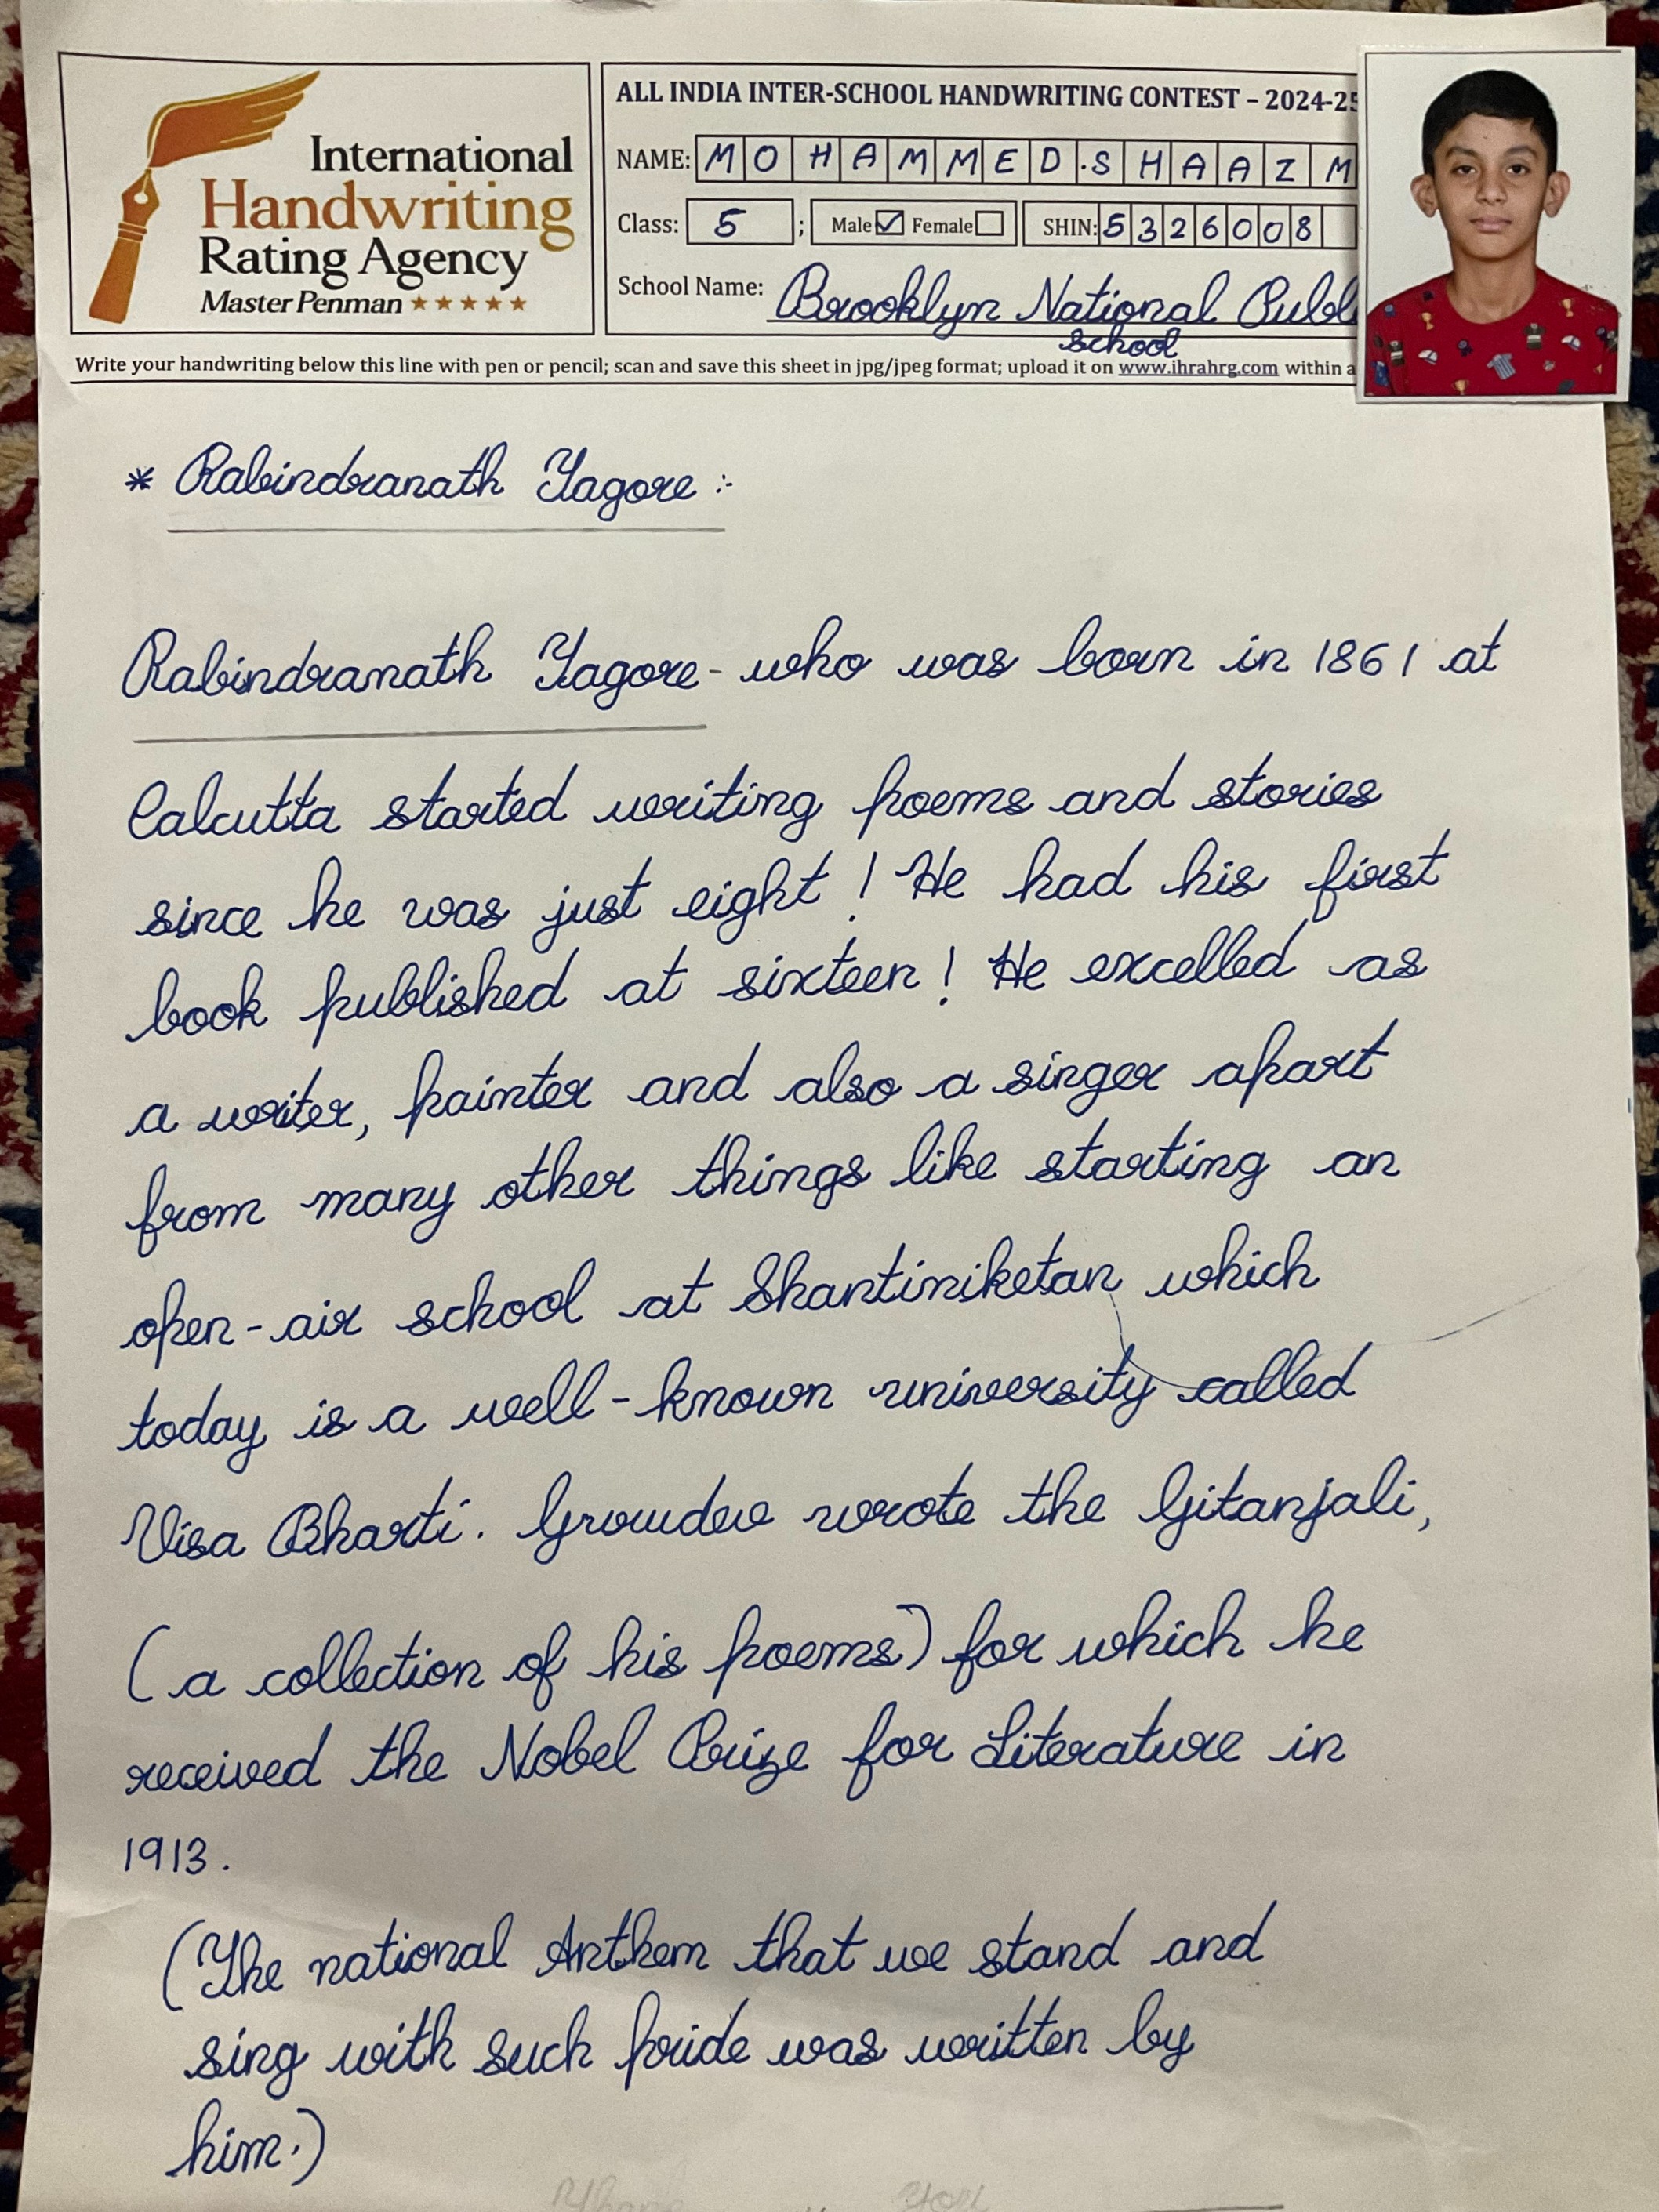 International
Handwriting
Rating Agency
Master Penman
ALL INDIA INTER-SCHOOL HANDWRITING CONTEST – 2024-25
NAME: MOHAMMED.SHAAZ M
Class: 5 ; Male ☑ Female ☐ SHIN: 5326008
School Name: Brooklyn National Publ
School
Write your handwriting below this line with pen or pencil; scan and save this sheet in jpg/jpeg format; upload it on www.ihrahrg.com within a
* Rabindranath Tagore :-
Rabindranath Tagore - who was born in 1861 at
Calcutta started writing poems and stories
since he was just eight ! He had his first
book published at sixteen ! He excelled as
a writer, painter and also a singer apart
from many other things like starting an
open-air school at Shantiniketan which
today is a well-known university called
Visa Bharti. Gruudev wrote the Gitanjali,
(a collection of his poems) for which he
received the Nobel Prize for Literature in
1913.
(The national Anthem that we stand and
sing with such pride was written by
him.)
Thank You